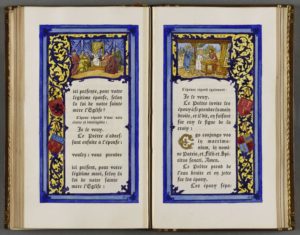 ici présente, pour votre
légitime épouse, selon
la loi de notre sainte
mère l'Eglise?
L'époux répond d'une voix
claire et intelligible:
Je le veux.
Le Prêtre s'adres-
sant ensuite à l'épouse:
voulez-vous prendre
ici présent, pour votre
légitime mari, selon la
loi de notre sainte mère
l'Eglise?
L'épouse répond également:
Je le veux.
Le Prêtre invite les
époux à se prendre la main
droite, et il dit, en faisant
sur eux le signe de la
croix:
Ego conjungo vos
in matrimo-
nium, in nomi-
ne Patris, et Filii et Spi-
ritus Sancti. Amen.
Le Prêtre prend de
l'eau bénite et en jette
sur les époux.
Les époux sépa-